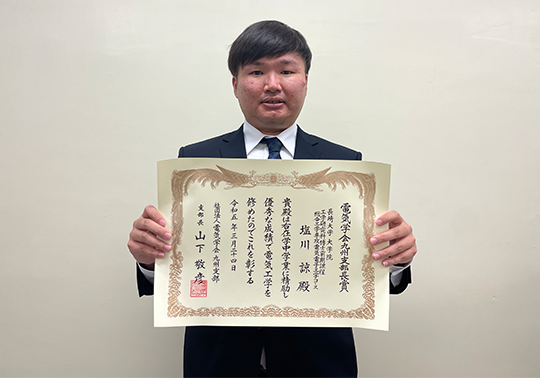 電気学会九州支部長賞
長崎大学大学院
工学研究科博士前期課程
総合工学専攻電気電子工学コース
塩川 諒 殿
貴殿は右在学中学業に精励し
優秀な成績で電気工学を
修めたのでこれを彰する
令和五年三月二十四日
社団法人電気学会九州支部
支部長 山下敬彦